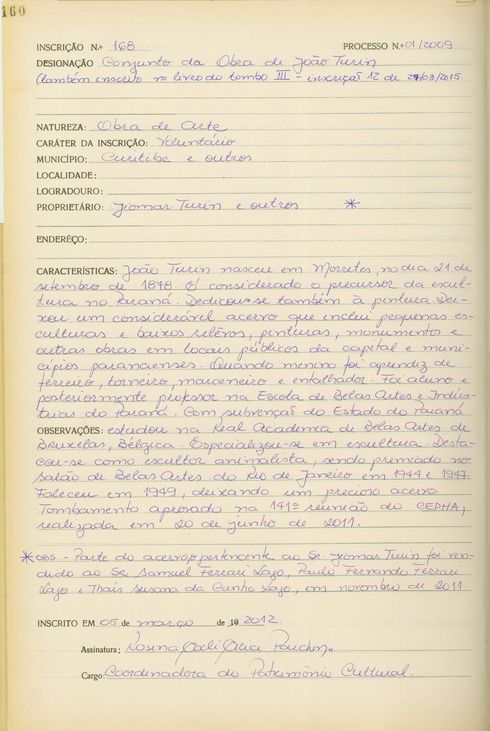 160
INSCRIÇÃO N.º 168 PROCESSO N.º 01/2009
DESIGNAÇÃO Conjunto da Obra de João Turin
(também inscrito no livro do tombo III - inscrição 12 de 27/03/2015
NATUREZA: Obra de Arte
CARÁTER DA INSCRIÇÃO: Voluntário
MUNICÍPIO: Curitiba e outros
LOCALIDADE:
LOGRADOURO:
PROPRIETÁRIO: Jiomar Turin e outros *
ENDERÊÇO:
CARACTERÍSTICAS: João Turin nasceu em Morretes, no dia 21 de
setembro de 1878. É considerado o precursor da escul-
tura no Paraná. Dedicou-se também à pintura. Dei-
xou um considerável acervo que inclui pequenas es-
culturas e baixos relêvos, pinturas, monumentos e
outras obras em locais públicos da capital e muni-
cípios paranaenses. Quando menino foi aprendiz de
ferreiro, torneiro, marceneiro e entalhador. Foi aluno e
posteriormente professor na Escola de Belas Artes e Indús-
trias do Paraná. Com subvenção do Estado do Paraná
OBSERVAÇÕES: estudou na Real Academia de Belas Artes de
Bruxelas, Bélgica. Especializou-se em escultura. Desta-
cou-se como escultor animalista, sendo premiado no
Salão de Belas Artes do Rio de Janeiro em 1944 e 1947.
Faleceu em 1949, deixando um precioso acervo.
Tombamento aprovado na 141ª reunião do CEPHA,
realizada em 20 de junho de 2011.
* OBS - Parte do acervo pertencente ao Sr. Jiomar Turin foi ven-
dido ao Sr. Samuel Ferrari Lago, Paulo Fernando Ferrari
Lago e Thais Susana da Cunha Lago, em novembro de 2011.
INSCRITO EM 05 de março de 19 2012
Assinatura: Rosina
Cargo: Coordenadora do Patrimônio Cultural.